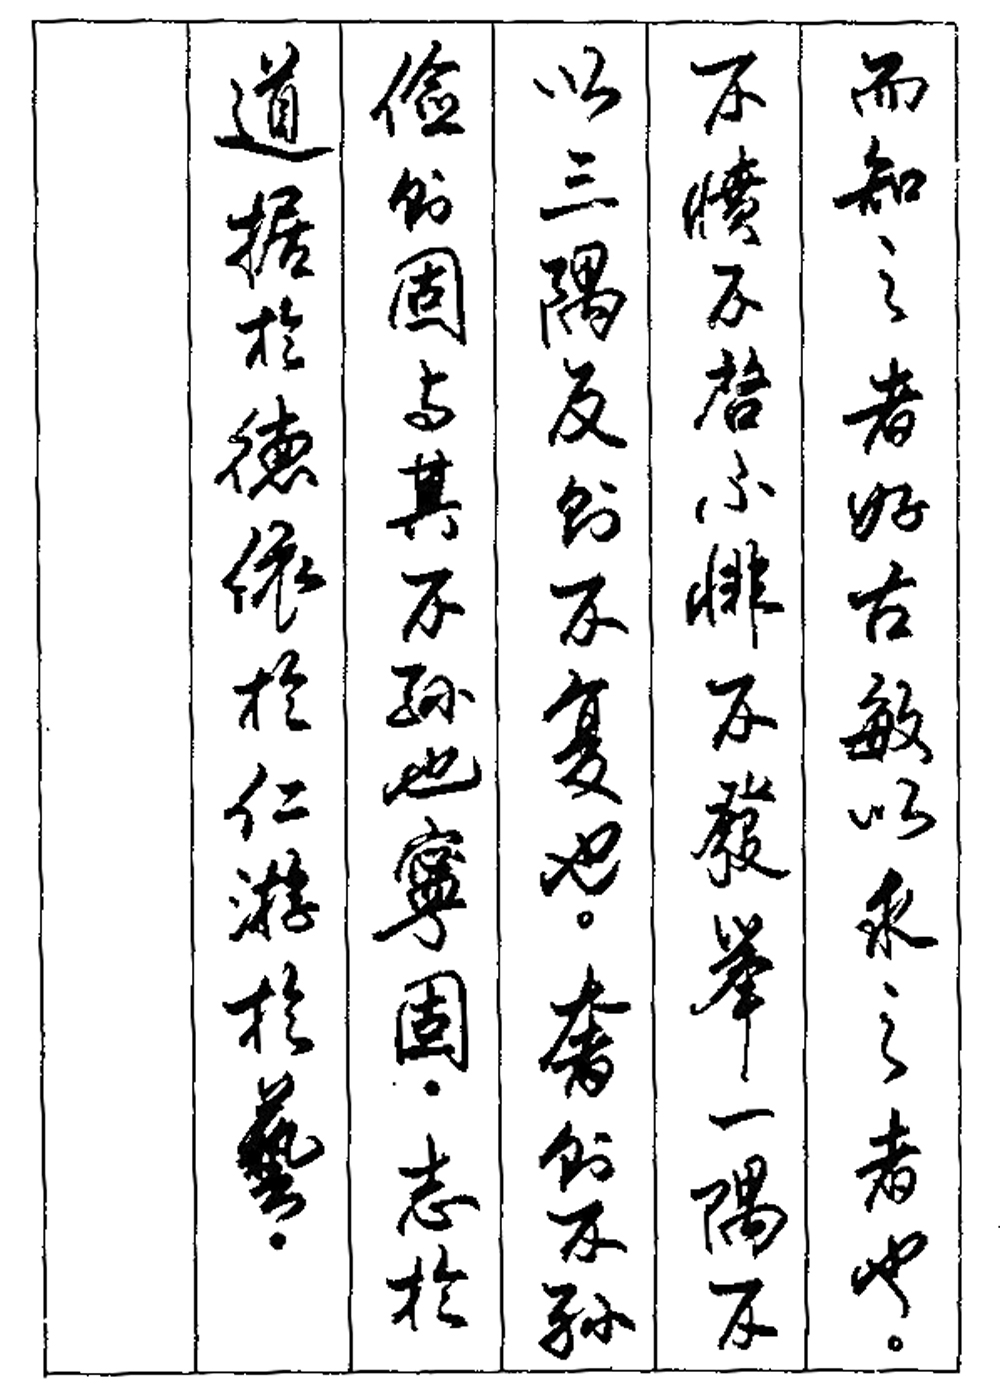 而知之者好古敏以求之者也。
不憤不啓不悱不發舉一隅不
以三隅反則不复也。奢則不孫
儉則固与其不孫也寧固。志於
道据於德依於仁游於藝。